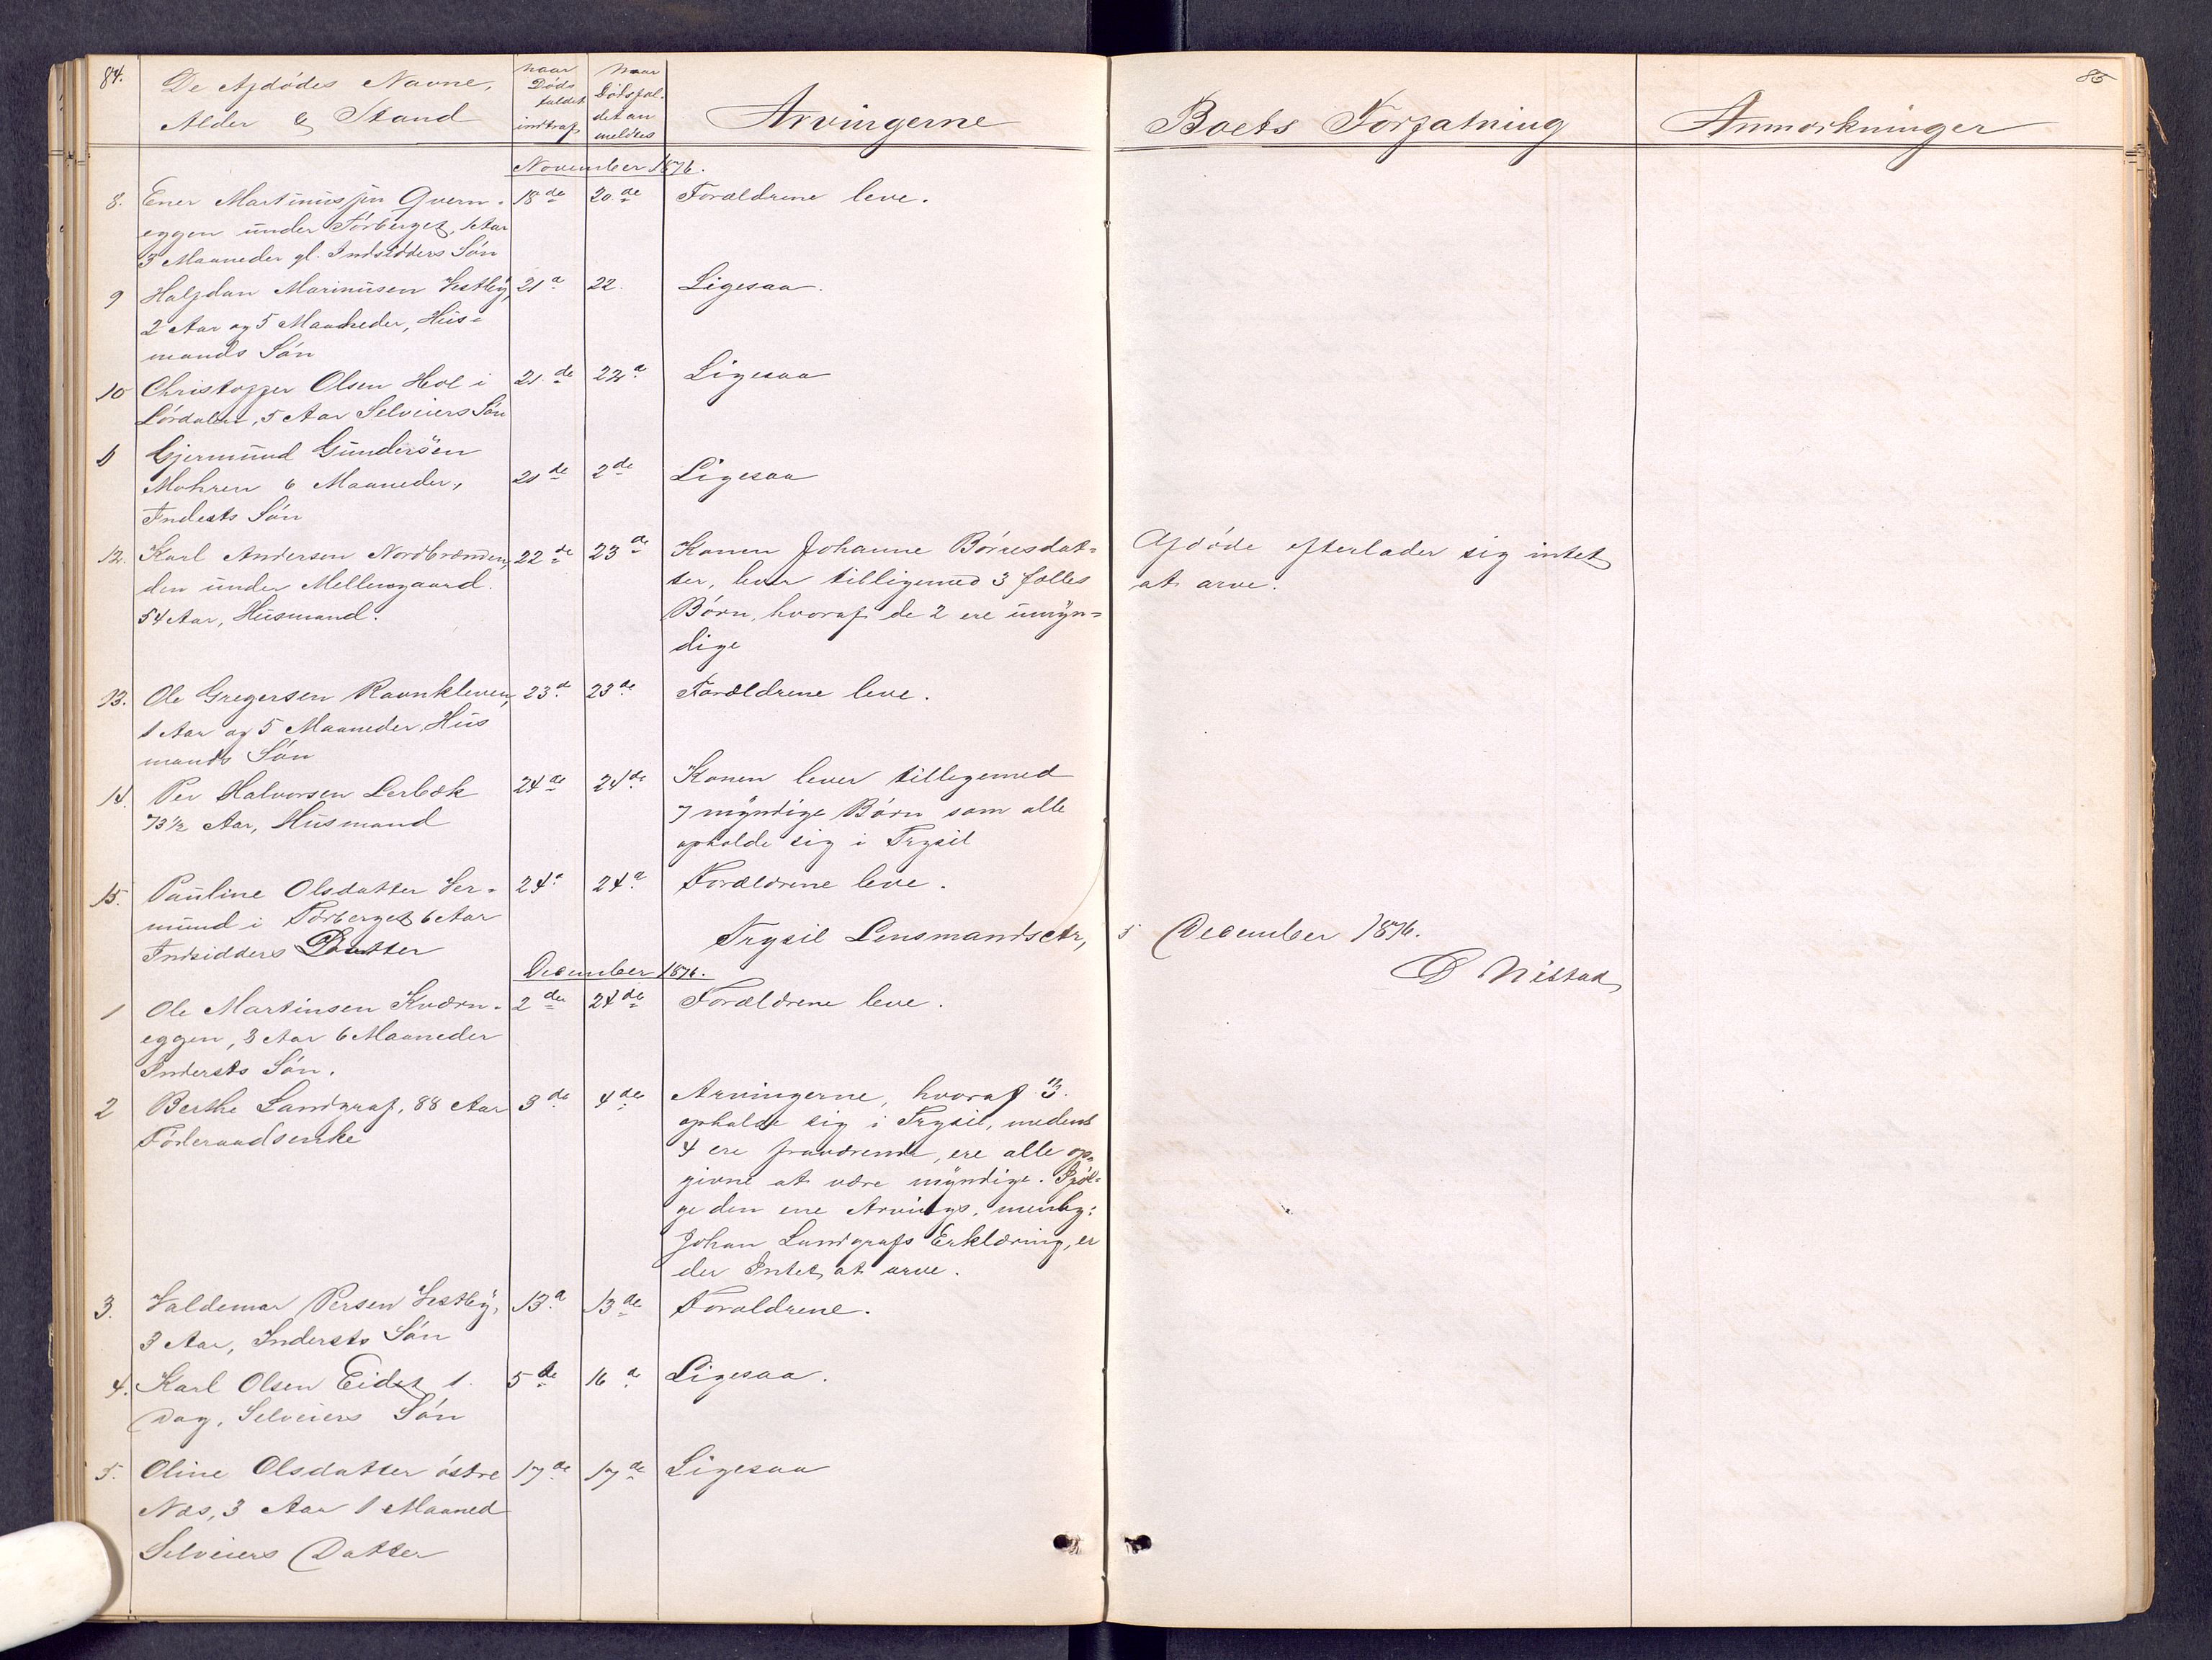 84.
De Afdødes Navne,
Alder & Stand
naar Døds faldet indtraf
naar Dødsfaldet an meldtes
Arvingerne
Boets Forfatning
Anmærkninger
85
November 1876.
8. Ener Martinussøn Qvern- 18de 20.de Forældrene leve.
eggen under Førberget, 1 Aar
3 Maaneder gl. Indsidders Søn
9 Halfdan Marinusen Vestby, 21d 22. Ligesaa.
2 Aar og 5 Maaneder, Hus-
mands Søn
10 Christoffer Olsen Hol i 21.de 22d Ligesaa
Lørdalen, 5 Aar Selveiers Søn
Gjermund Gundersøn
Mohren 6 Maaneder, 21de 2de Ligesaa
Indests Søn
12. Karl Andersen Nordbrænden, 22de 23de Konen Johanne Børresdat- Afdøde efterlader sig intet
den under Mellemgaard. ter, lever tilligemed 3 fælles at arve.
54 Aar, Husmand. Børn, hvoraf de 2 ere umyn-
dige
13. Ole Gregersen Ravnkleven, 23d 23de Forældrene leve.
1 Aar og 5 Maaneder, Hus
mands Søn
14. Per Halvorsen Lerbæk 24de 24de Konen lever tillegemed
73 1/2 Aar, Husmand 7 myndige Børn som alle
opholde sig i Trysil
15. Pauline Olsdatter Ver- 24d 24d Forældrene leve.
mund i Førberget 6 Aar
Indsidders Datter
Trysil Lensmandsctr, 5 December 1876.
O Nistad
December 1876.
1 Ole Martinsen Kværn- 2den 24de Forældrene leve.
eggen, 3 Aar 6 Maaneder
Inderests Søn.
2 Berthe Landgraf, 88 Aar 3de 4de Arvingerne, hvoraf 3.
Føderaadsenke opholde sig i Trysil, medens
4 ere fraværende, ere alle op-
givne at være myndige. Iføl-
ge den ene Arvings, nemlig:
Johan Landgrafs Erklæring, er
der Intet at arve.
3. Valdemar Persen Vestby, 13d 13de Forældrene.
3 Aar, Indersts Søn
4. Karl Olsen Eidet 1 5te 16d Ligesaa.
Dag, Selveiers Søn
5. Oline Olsdatter østre 17de 17de Ligesaa
Næs, 3 Aar 1 Maaned
Selveiers Datter